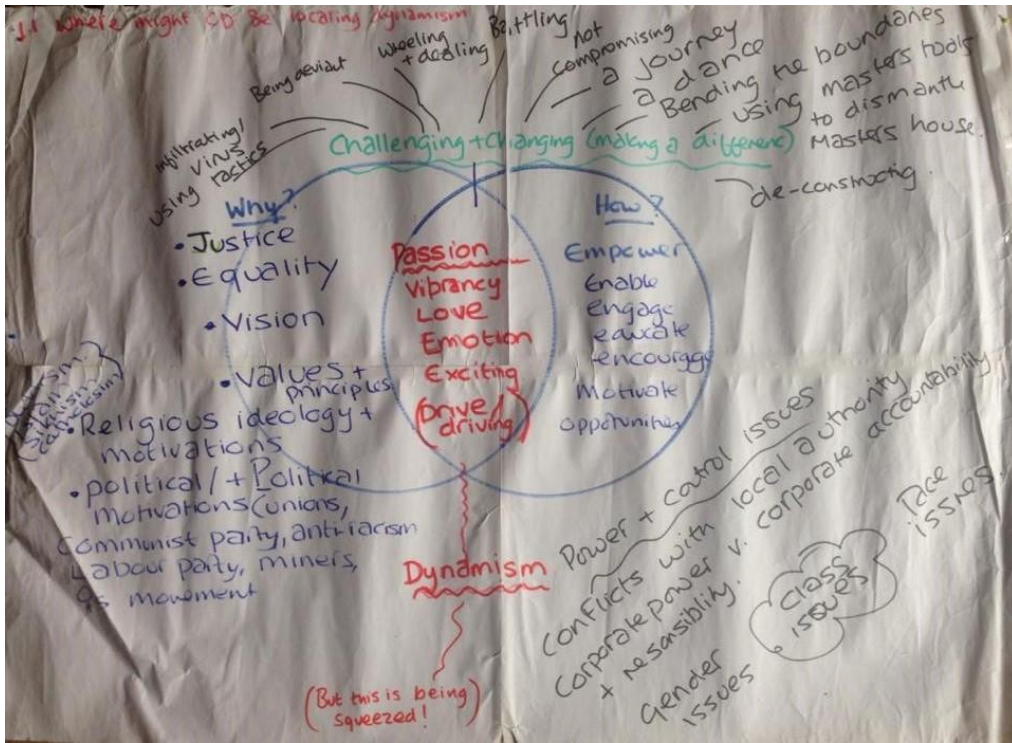 1.1 Where might CD be locating dynamism
Being deviant
Wheeling
+ dealing
Battling
Not
compromising
a journey
a dance
Bending the boundaries
using masters tools
to dismantle
Masters house.
de-constructig.
infiltrating/
using virus
tactics
Challenging + changing (making a different)
Why?
• Justice
• Equality
• Vision
• Values +
principles
• Religious ideology +
motivations
• political/+ Political
motivations (unions,
Communist party, anti-racism
Labour party, miners,
movement
Passion
Vibrancy
Love
Emotion
Exciting
(Drive/
driving)
How?
Empower
Enable
engage
educate
encourage
Motivate
opportunities
Dynamism
(But this is being
squeezed!)
Power + control issues
Conflicts with local authority
Corporate power v. corporate accountability
+ resansiblity.
Gender
issues
Class
issues
Race
issues.